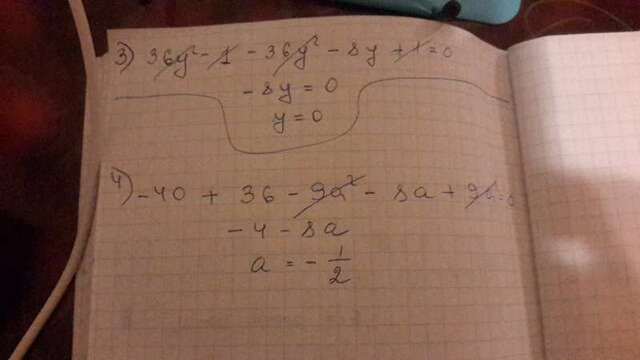 3) 36y² - 1 - 36y² - 8y + 1 = 0
- 8y = 0
y = 0
4) - 40 + 36 - 9a² - 8a + 9a = 0
- 4 - 8a
a = - 1/2